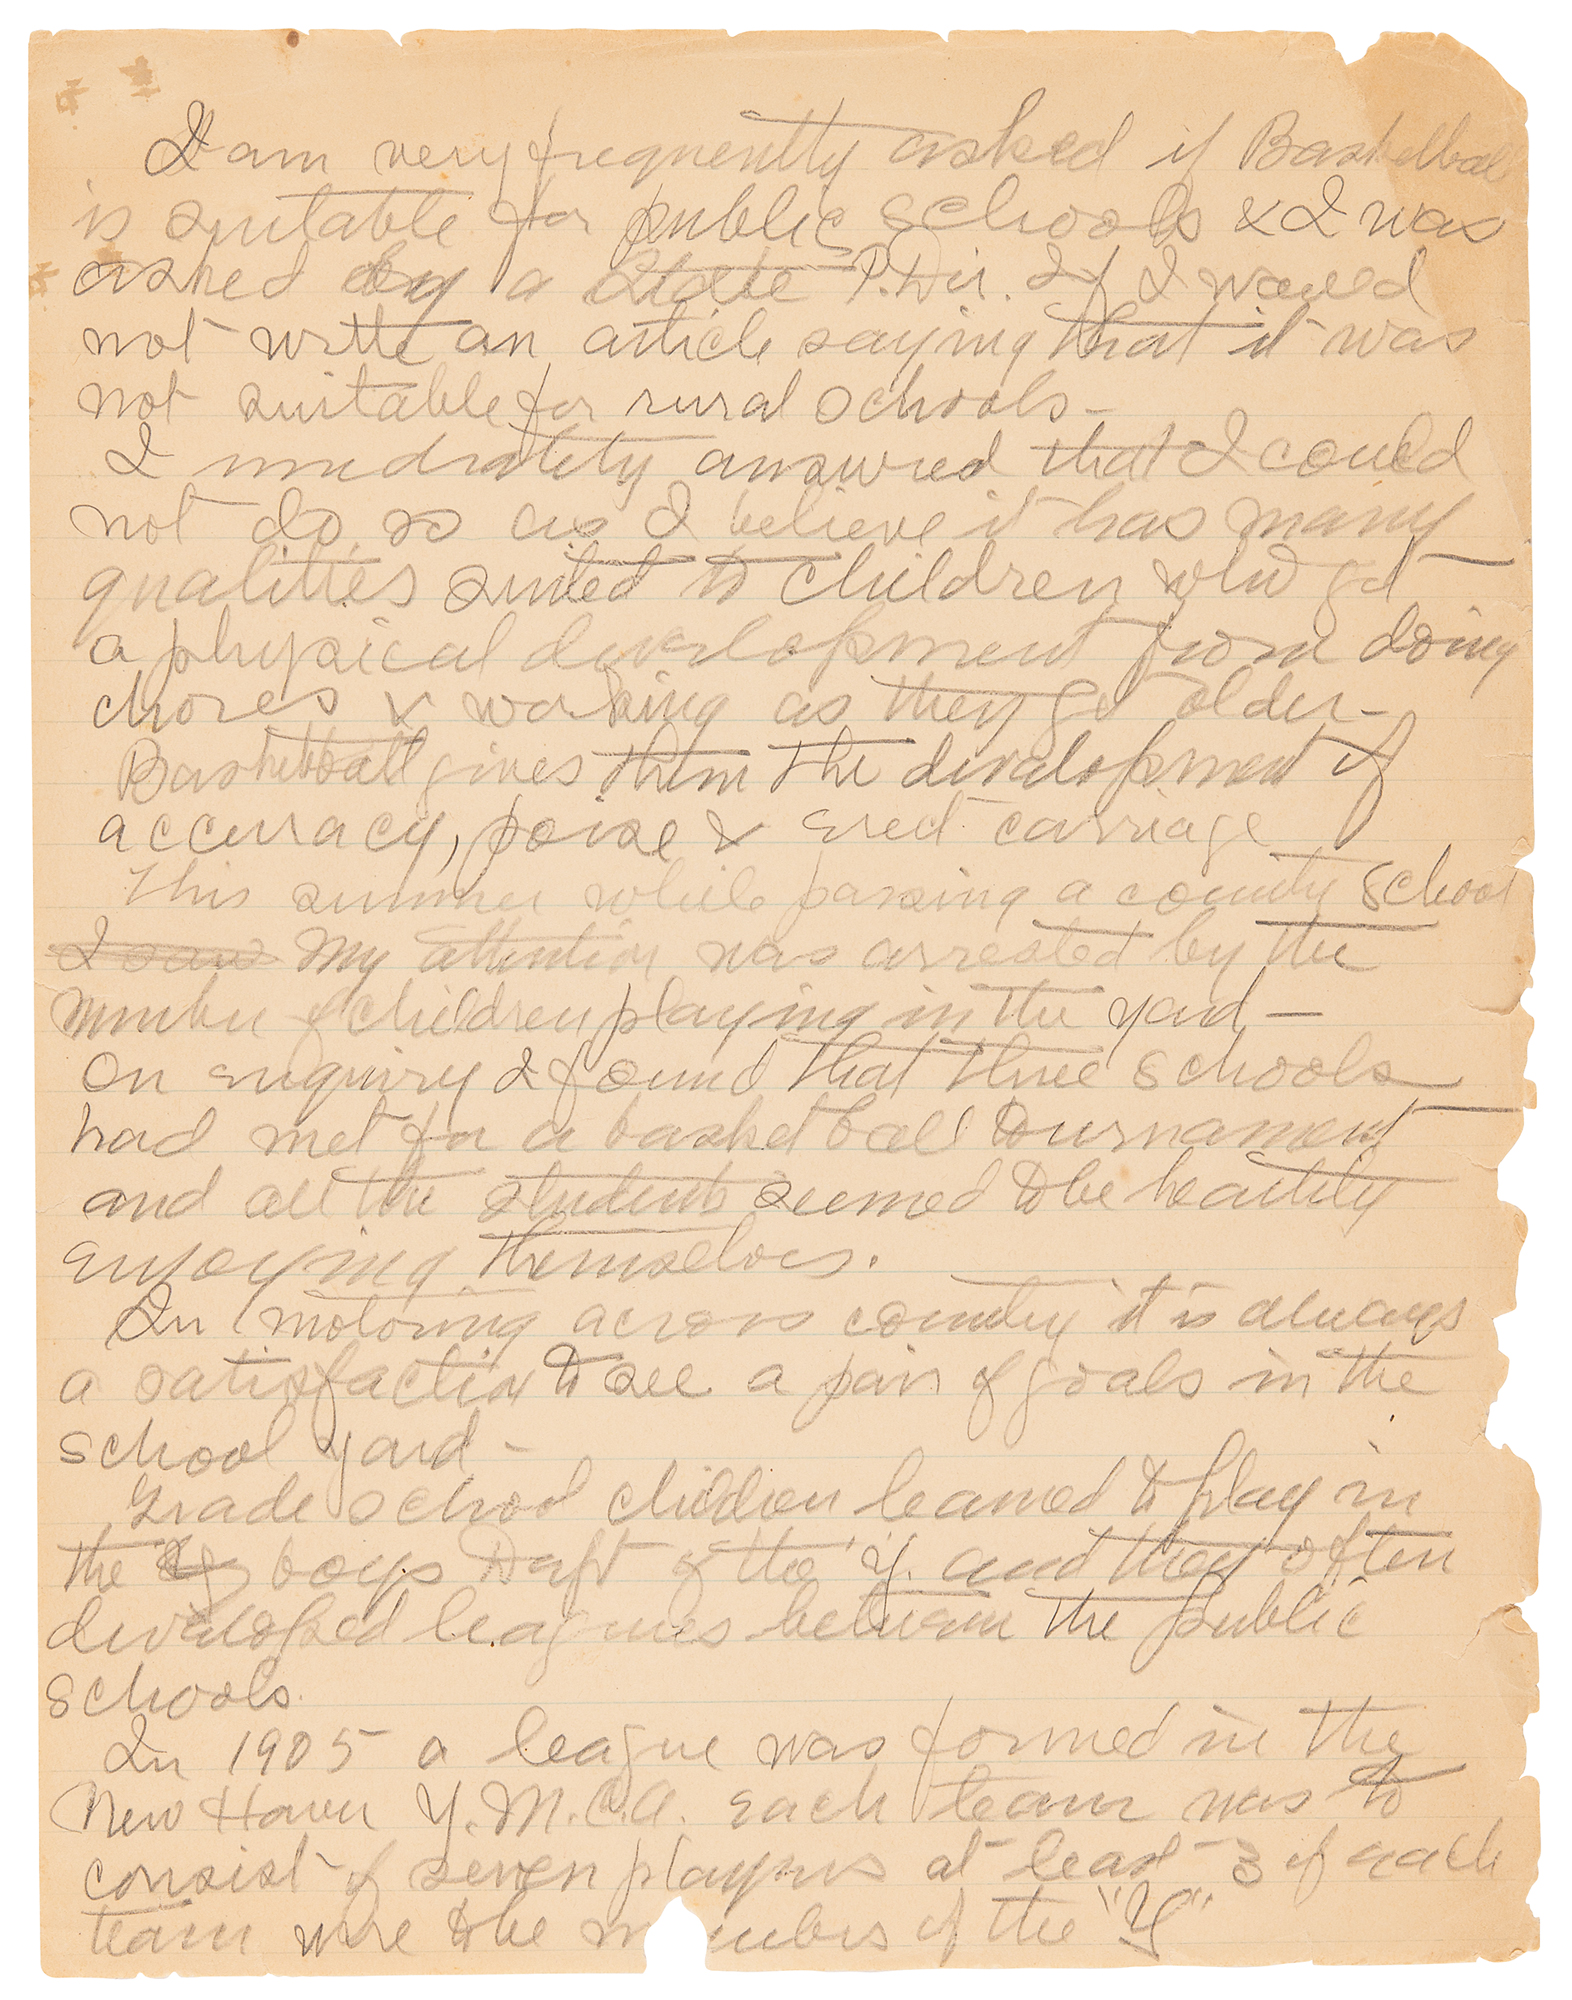 I am very frequently asked if Basketball
is suitable for public schools & I was
asked by a State P. Dir. If I would
not write an article saying that it was
not suitable for rural schools -
I imediatety answred that I could
not do so as I believe it has many
qualities suited to children who get
a physical development from doing
chores & working as they get older -
Basketball gives them the development of
accuracy, poise & erect carriage
This summer while passing a county School
I saw My attention was arrested by the
number of children playing in the yard -
On enquiry I found that three schools
had met for a basket ball tournament
and all the students seemed to be heartily
enjoying themselves.
In motoring across country it is always
a satisfaction to see a pair of goals in the
school yard -
Grade school children learned to play in
the boys Deft of the 'Y. and they often
developed leagues between the public
schools.
In 1905 a league was formed in the
New Haven Y.M.C.A. Each team was to
consist of seven players at least 3 of each
team were to be members of the "Y"